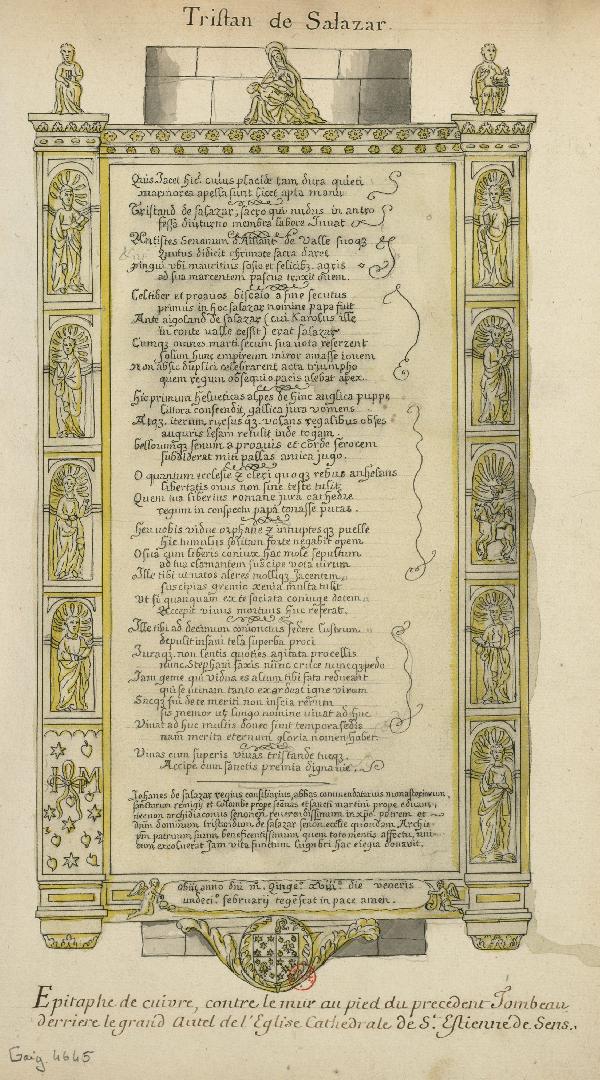 Tristan de Salazar.
Quis Jacet hic cuius placide tam dura quieti
marmorea apta manu
Tristand de salazar, sacro qui nudus in antro
fessa diuturno membra labore Juuat
Antistes Senonum de valle suoqz
didicit chrismate sacra daret
pingui vbi mauritius sosio et felicibz agris
ad sua marcentem pascua traxit ouem.
Celtiber et proauos biscaio a sine secutus
primus in hoc salazar nomine papa fuit
Ante aigoland de salazar (cui Karolus ille
in conte valle cessit) erat salazar
Cumqz omnes marti secum sua vota referrent
solum hunc empireum miror amasse iouem
non absqz duplici celebrarent acta triumpho
quem regum obsequio pacis alebat apex.
hic primum helueticas alpes de hinc anglica puppe
littora conscendit, gallica jura vomens
Atqz iterum rursus volans regalibus obses
auguris lesam retulit inde togam.
bellorumqz senum a proauis et corde ferocem
subdiderat miti pallas amica jugo.
O quantum ecclesie & cleri quoqz rebus anhelans
libertatis onus non sine teste tulit
Quem tua liberius romane jura cathedre
regum in conspectu papa tonasse putat.
heu vobis vidue orphane & innuptesqz puelle
hic tumulus solitam forte negabit opem
O sua cum liberis coniux hac mole sepultum
ad tua clamantem suscipe vota virum
Ille tibi vt natos aleres mollisqz Jacentum
suscipias gremio xenia multa tulit
Vt si quanquam ex te sociata coniuge dotem
Accepit viuus mortuus huc referat.
Ille tibi ad decimum conionctus federe lustrum
depulit insani tela superba proci
Juraqz non sentis quoties agitata procellis
nunc Stephani saxis nunc cruce nuncqz pedo
Jam geme qui vidua es alium tibi fata reducant
qui se virum tanto exardeat igne virum
Sacqz sui de te meriti non inscia rerum
sis memor vt longo nomine viuat ad huc
Viuat ad huc multis donec sint tempora seclis
nam merita eternum gloria nomen habet.
Viuas cum superis viuas tristande tuoqz
Accipe cum sanctis premia digna
Johanes de salazar regius consiliarius, abbas commendatarius monasteriorum,
sanctarum remigij et Colombe prope senonas et sancti martini prope eduam,
necnon archidiaconus senonen reuerendissimum in xpo patrem et
dnum dominum tristandum de salazar senon ecclie quondam Archi
pm patruum suum beneficentissimum quem toto mentis affectu, viui
dum excoluerat Jam vita functum Lugubri hac elegia donauit.
obijt anno dni m. qinge. xviij. die veneris
undeci. februarij tegest at in pace amen.
IHM
Epitaphe de cuivre, contre le mur au pied du precedent Tombeau
derriere le grand Autel de l'Eglise Cathedrale de St. Estienne de Sens.
Gaig. 4645